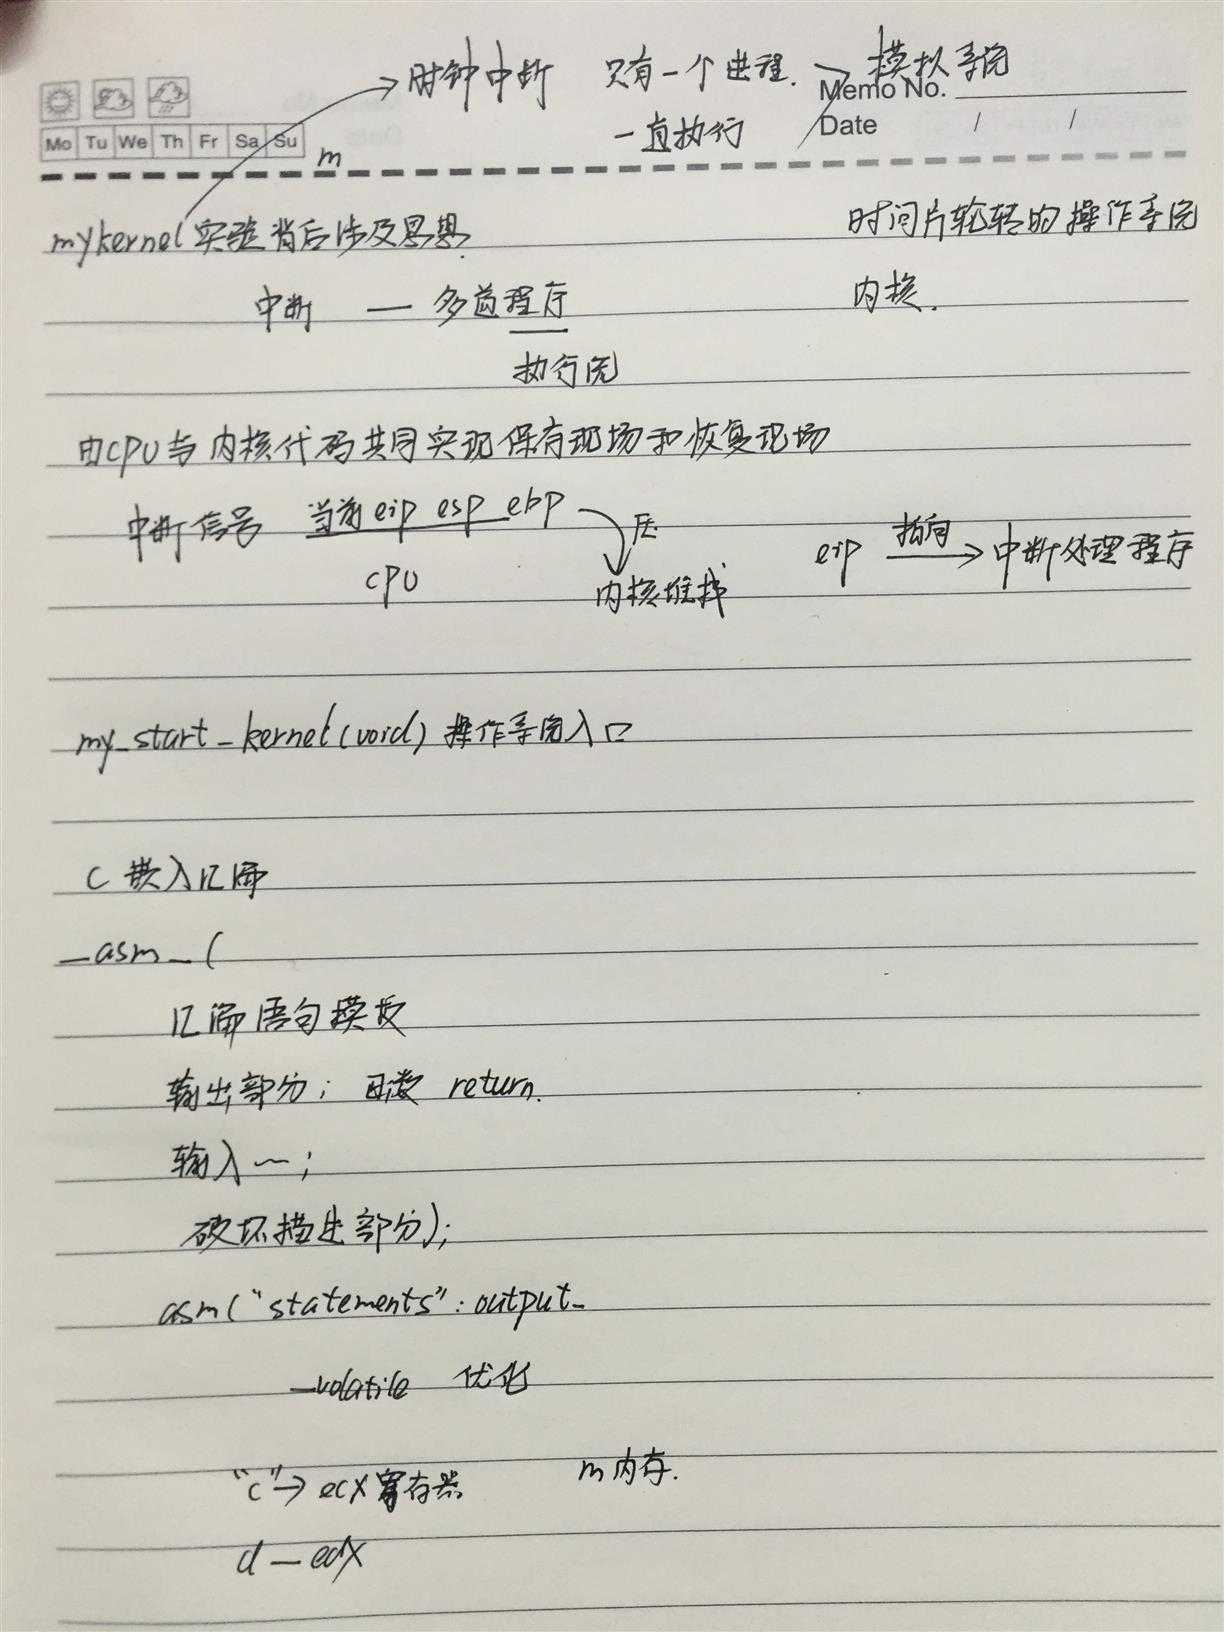 时钟中断 只有一个进程. 模拟系统
Memo No.
一直执行
Date / /
Mo Tu We Th Fr Sa Su
m
mykernel 实验背后涉及思想.
时间片轮转的操作系统
中断 — 多道程序
内核.
执行流
由CPU与内核代码共同实现保存现场和恢复现场
中断信号 当前 eip esp ebp 压
eip 指向 中断处理程序
CPU 内核堆栈
my_start_kernel(void) 操作系统入口
C 嵌入汇编
_asm_(
汇编语句模板
输出部分; 函数 return.
输入~;
破坏描述部分);
asm("statements": output_
_volatile 优化
"c"→ ecx寄存器 m内存.
d — edx